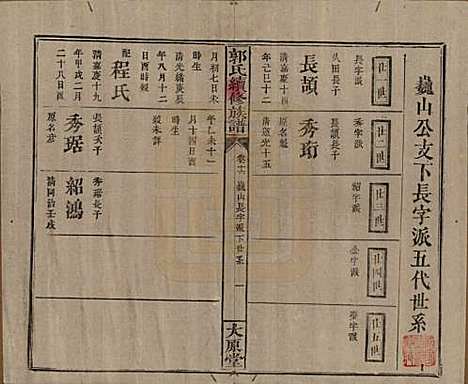 巍山公支下長字派五代世系
廿一世
長字派
廿二世
秀字派
廿三世
紹字派
廿四世
廿五世
長頡
久田長子
清嘉慶十四
年己巳十二
月初七日未
時生
配程氏
清光緒庚辰
年八月十二
日酉時歿
秀珩
長頡長子
原名
清道光十五
年乙未十一
月十四日酉
時生
歿未詳
郭氏續修族譜
巍山長字派下世系
一
太原堂
清嘉慶十九
年甲戌二月
二十八日酉
秀琚
長頡次子
原名
紹鴻
秀琚長子
清同治壬戌